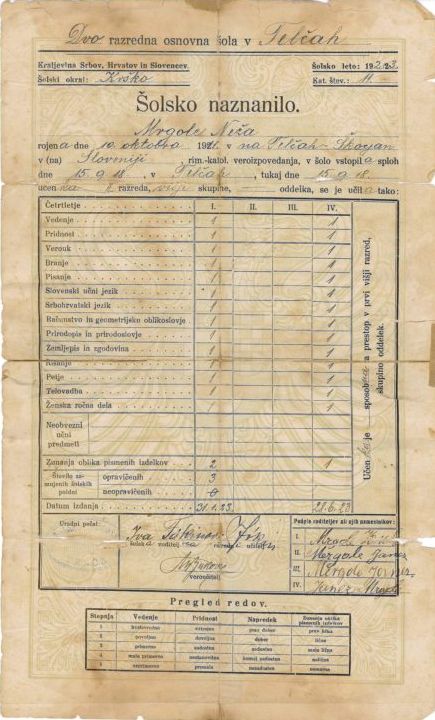 Dvo razredna osnovna šola v Telčah
Kraljevina Srbov, Hrvatov in Slovencev. Šolsko leto: 1922/23
Šolski okraj: Krško Kat. štev.: 11.
Šolsko naznanilo.
Mrgole Neža
rojena dne 10. oktobra 1911 v na Telčah-Škocjan
v (na) Sloveniji, rim.-katol. veroizpovedanja, v šolo vstopila sploh
dne 15. 9. 18. v Telčah, tukaj dne 15. 9. 18.
učenka razreda, skupine, oddelka, se je učila tako:
Četrtletje I. II. III. IV.
Vedenje 1 1
Pridnost 1 1
Verouk 1 1
Branje 1 1
Pisanje 1 1
Slovenski učni jezik 1 1
Srbohrvatski jezik 1 1
Računstvo in geometrijsko oblikoslovje 1 1
Prirodopis in prirodoslovje 1 1
Zemljepis in zgodovina 1 1
Risanje 1 1
Petje 1 1
Telovadba 1 1
Ženska ročna dela 1 1
Neobvezni
učni
predmeti
Zunanja oblika pismenih izdelkov 2 1
Število zamujenih šolskih poldni opravičenih 3
neopravičenih 0
Datum izdanja 31.1.23. 28.6.23
Učenka je sposobna za prestop v prvi višji razred,
skupino oddelek.
Uradni pečat: Podpis roditeljev ali njih namestnikov:
Iva
šolska voditeljica razredni učitelj
veroučitelj
I. Mrgole
II. Mergole Janez
III. Mergole Janez
IV. Janez Mrgole
Pregled redov.
Stopnja Vedenje Pridnost Napredek Zunanja oblika pismenih izdelkov
1 vzgledno prav dober prav lična
2 pohvalno dober lična
3 primerno zadosten manj lična
4 manj primerno komaj zadosten nelična
5 neprimerno nezadosten